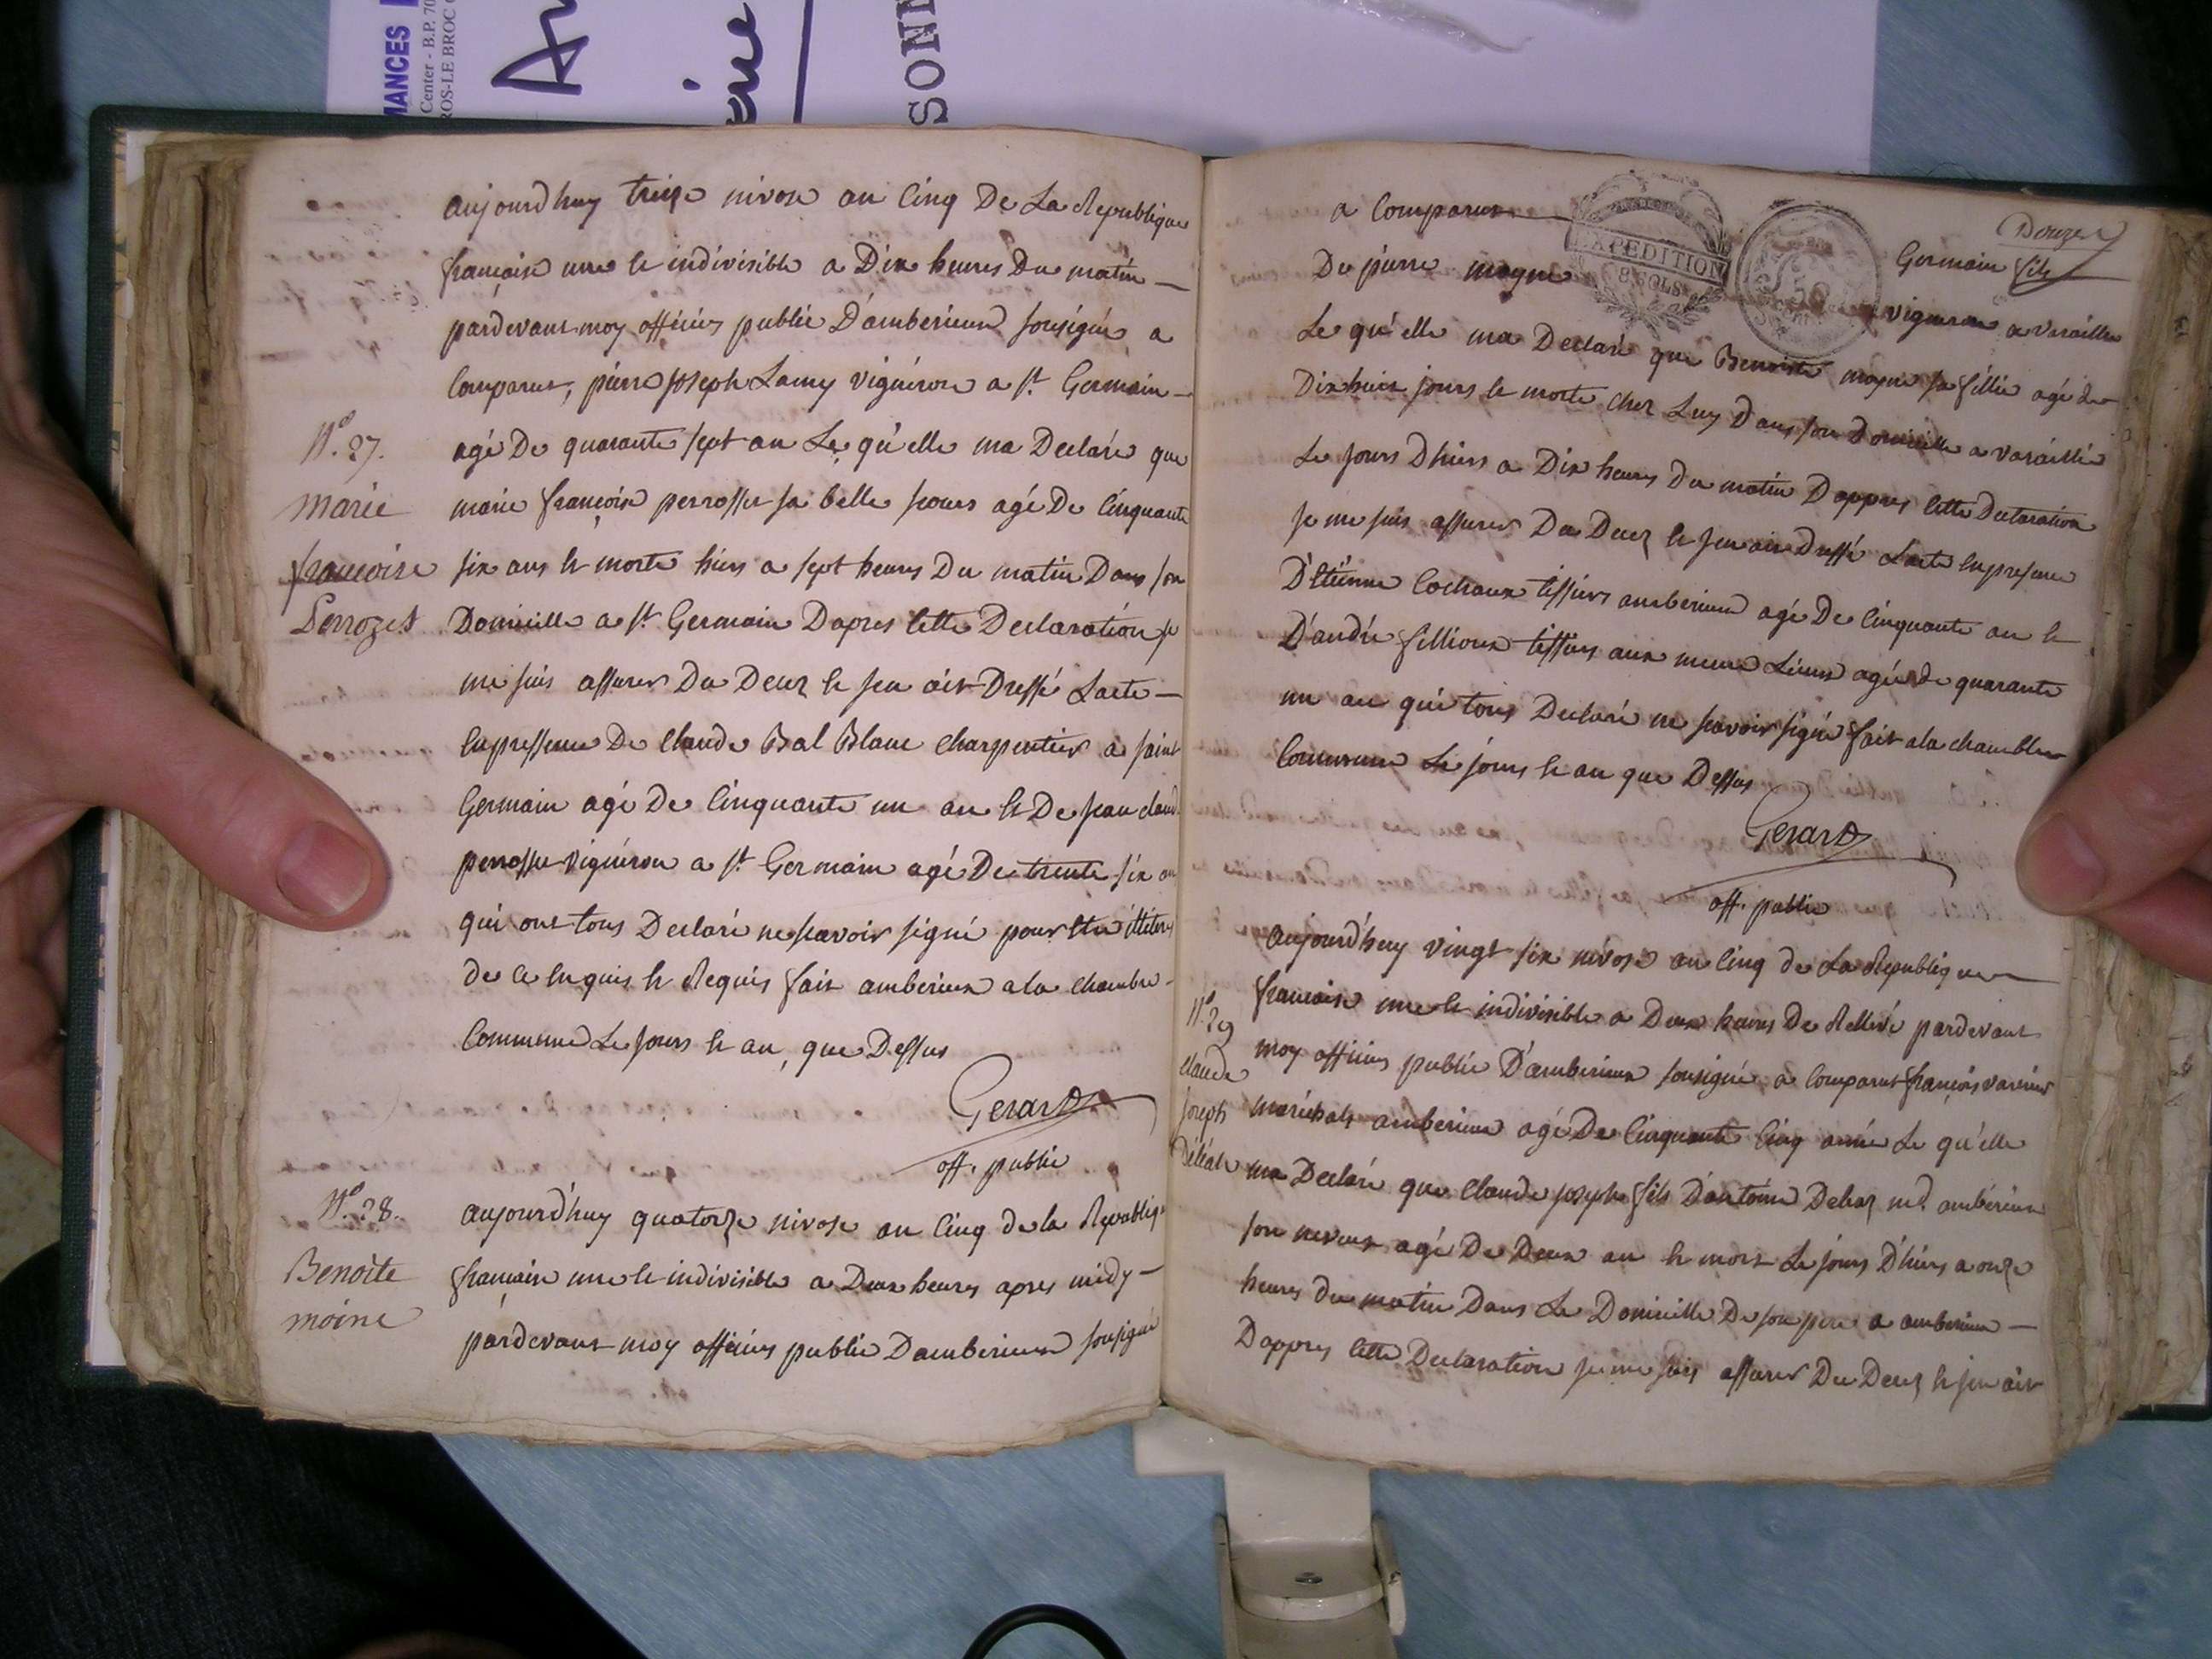 MANCES
Center - B.P. 70
ROS-LE BROC
SONN
aujourdhuy treize nivose an Cinq De La Republique
françoise une et indivisible a Dix heures Du matin —
pardevant moy officier public D'amberieux sousigné a
Comparut, pierre joseph Lamy vigneron a St Germain —
N.º 27.
agé De quarante sept an Le qu'elle ma Declaré que
marie
françoise
Perrozet
marie françoise perrosset sa belle soeur agé De Cinquante
six ans et morte hiers a sept heures Du matin Dans son
Domicille a St Germain Dapres Cette Declaration je
me suis assurer Du Deuz et jen ait Dressé Lacte —
Enpressence De Claude Bal Blanc Charpentier a saint
Germain agé De Cinquante un an et De jean claud
perrosset vigneron a St Germain agé De trente six an
qui ont tous Declaré ne scavoir signé pour Etre illiteré
de ce Enquis et Requis fait amberieux a la Chambre
Commune Le jours et an, que Dessus
Gerard
off. public
N.º 28.
Benoite
moine
aujourd'huy quatorze nivose an Cinq de la Republiq
françoise une et indivisible a Deux heures apres midy —
pardevant moy officier public D'amberieux sousigné
Douze
Germain fils
a Comparut
EXPEDITION
8 SOLS
De pierre moyne vigneron a varaille
Le qu'elle ma Declaré que Benoite moyne sa fillie agé de
Dix huit jours et morte chez Luy Dans son Domicille a varaillie
Le jours Dhiers a Dix heures Du matin Dappres Cette Declaration
je me suis assurer Du Deuz et jen ait Dressé Lacte Enpresence
D'Etienne Cochaux tissiers amberieux agé De Cinquante an et
D'andré fillioux tissiers aux meme Lieux agé de quarante
un an qui tous Declaré ne scavoir signé fait a la chambre
Commune Le jours et an que Dessus
Gerard
off. public
aujourd'huy vingt six nivose an Cinq de La Republique
N.º 29
Claude
joseph
françoise une et indivisible a Deux heures De Rellevé pardevant
moy officier public D'amberieux sousigné a Comparut françois
marichals amberieux agé De Cinquante Cinq année Le qu'elle
ma Declaré que Claude joseph fils D'antoine Delaz md. amberieux
son neveux agé De Deux an et mort Le jours D'hiers a onze
heures du matin Dans Le Domicille De son pere a amberieux —
Dappres Cette Declaration je me suis assurer Du Deuz et jen ait